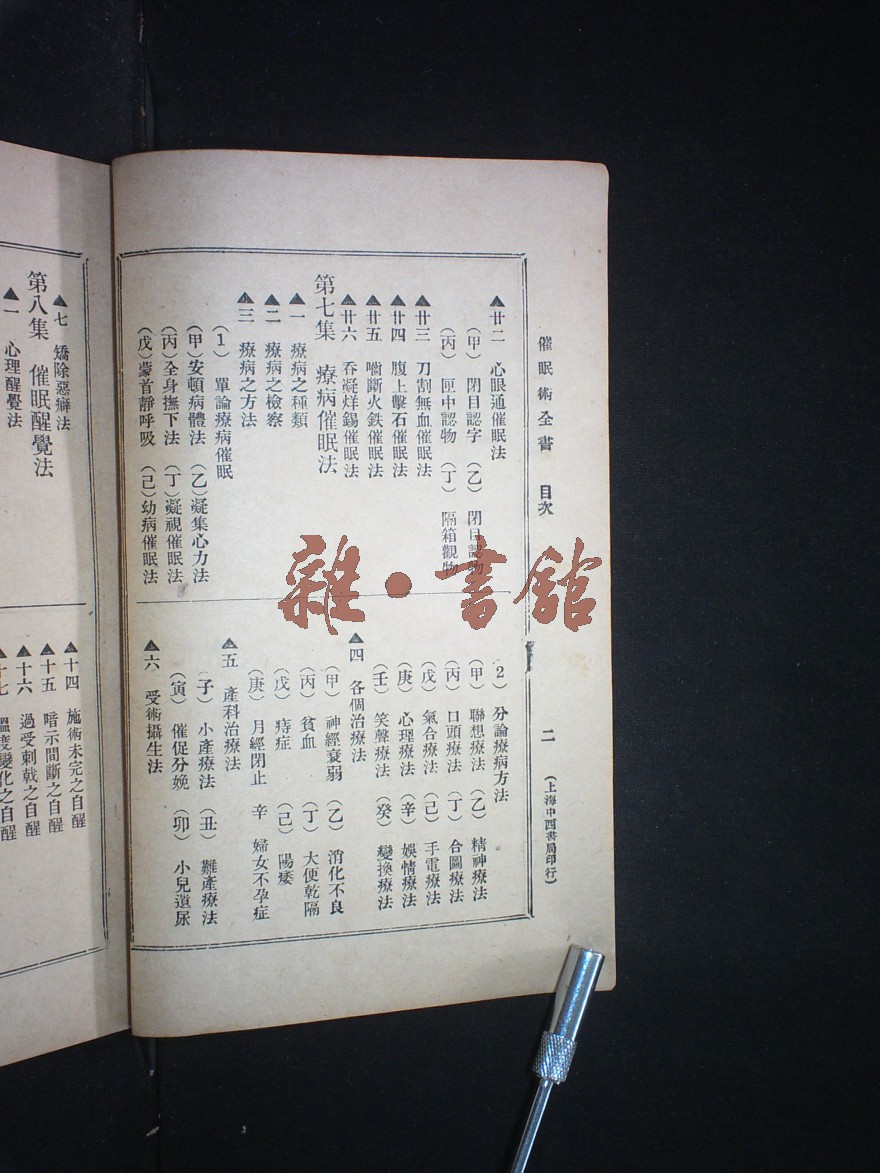 催眠術全書 目次 二 (上海中西書局印行)
▲廿二 心眼通催眠法
(甲) 閉目認字 (乙) 閉目認物
(丙) 匣中認物 (丁) 隔箱觀物
▲廿三 刀割無血催眠法
▲廿四 腹上擊石催眠法
▲廿五 嚙斷火鉄催眠法
▲廿六 吞凝烊錫催眠法
第七集 療病催眠法
▲一 療病之種類
▲二 療病之檢察
▲三 療病之方法
(1) 單論療病催眠
(甲)安頓病體法 (乙)凝集心力法
(丙)全身撫下法 (丁)凝視催眠法
(戊)蒙首靜呼吸 (己)幼病催眠法
2) 分論療病方法
(甲) 聯想療法 (乙) 精神療法
(丙) 口頭療法 (丁) 合圖療法
(戊) 氣合療法 (己) 手電療法
(庚) 心理療法 (辛) 娛情療法
(壬) 笑聲療法 (癸) 變換療法
▲四 各個治療法
(甲) 神經衰弱 (乙) 消化不良
(丙) 貧血 (丁) 大便乾隔
(戊) 痔症 (己) 陽痿
(庚) 月經閉止 辛 婦女不孕症
▲五 產科治療法
子) 小產療法 (丑) 難產療法
(寅) 催促分娩 (卯) 小兒遺尿
▲六 受術攝生法
▲七 矯除惡癖法
第八集 催眠醒覺法
▲一 心理醒覺法
▲十四 施術未完之自醒
▲十五 暗示間斷之自醒
▲十六 過受刺戟之自醒
▲十七 溫度變化之自醒
雜·書館